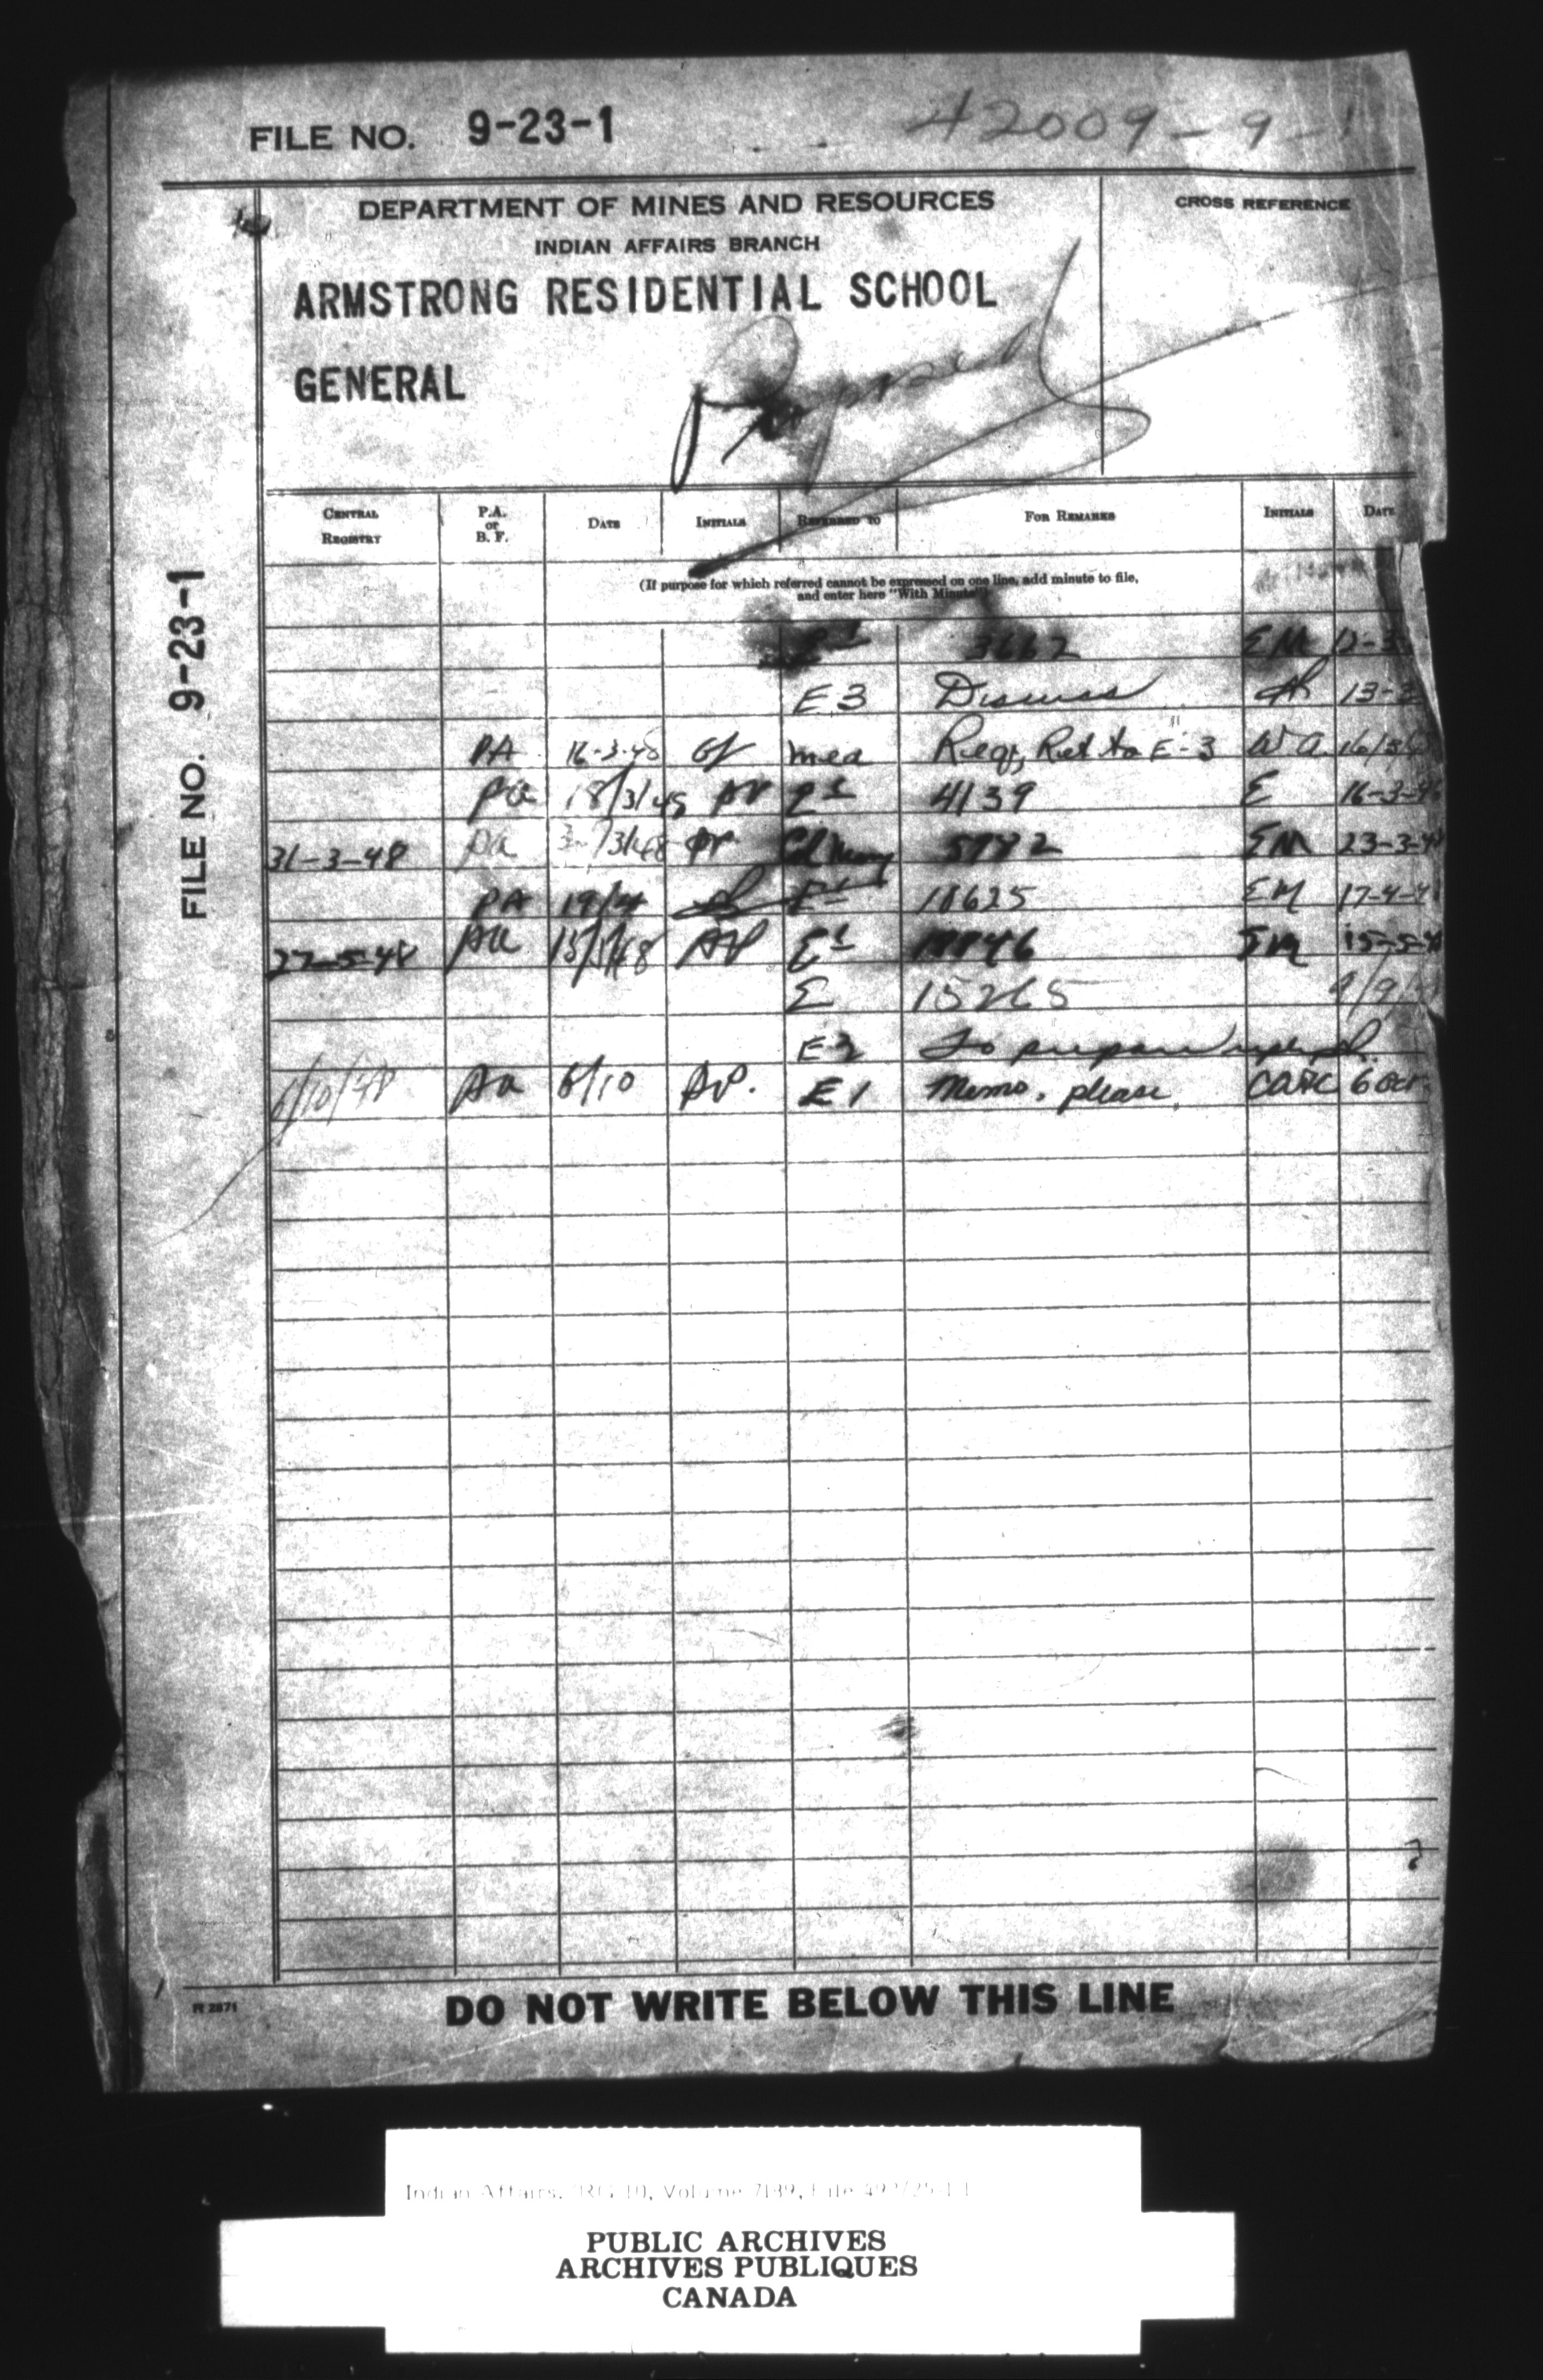 FILE NO. 9-23-1
42009-9-1
DEPARTMENT OF MINES AND RESOURCES
CROSS REFERENCE
INDIAN AFFAIRS BRANCH
ARMSTRONG RESIDENTIAL SCHOOL
GENERAL
FILE NO. 9-23-1
CENTRAL REGISTRY
P.A. or B. F.
DATE
INITIALS
REFERRED TO
FOR REMARKS
INITIALS
DATE
(If purpose for which referred cannot be expressed on one line, add minute to file,
and enter here "With Minute")
3662 EM 12-3
E3 Discuss 13-3
PA 16-3-48 Req, Ret to E-3 WA
pa 18/3/48 4139 E 16-3-4
31-3-48 pa EM 23-3-4
PA 19/4 E1 11625 EM 17-4-4
27-5-48 pa E1 EM 15-5-4
E 15265 9/9/
E3 To prepare
6/10/48 pa 6/10 E1 Memo. please,
6 Oct.
DO NOT WRITE BELOW THIS LINE
R 2871
Indian Affairs. RG 10, Volume 7189, File
PUBLIC ARCHIVES
ARCHIVES PUBLIQUES
CANADA